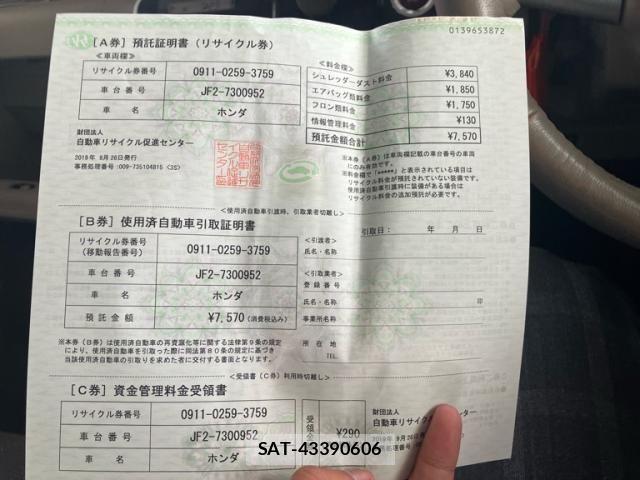 0139653872
［A券］預託証明書（リサイクル券）
≪車両欄≫
リサイクル券番号 0911-0259-3759
車台番号 JF2-7300952
車 名 ホンダ
≪料金欄≫
シュレッダーダスト料金 ¥3,840
エアバッグ類料金 ¥1,850
フロン類料金 ¥1,750
情報管理料金 ¥130
預託金額合計 ¥7,570
財団法人
自動車リサイクル促進センター
2019年 9月26日発行
事務処理番号：009-735104815 <3S>
※本券（A券）は車両欄記載の車台番号の車両
にのみ有効です。
※料金欄で「*****」と表示されている項目は
リサイクル料金が預託されていない装備です。
使用済自動車引渡時に装備がある場合は
リサイクル料金の追加預託が必要です。
<使用済自動車引渡時、引取業者切離し>
［B券］使用済自動車引取証明書
引取日： 年 月 日
リサイクル券番号
(移動報告番号) 0911-0259-3759
車台番号 JF2-7300952
車 名 ホンダ
預託金額 ¥7,570（消費税込み）
<引渡者>
氏名・名称
<引取業者>
登録番号
氏名・名称 印
事業所名称
所在地
TEL.
※本券（B券）は使用済自動車の再資源化等に関する法律第9条の規定
により、使用済自動車を引取った際に同法第80条の規定に基づき
当該使用済自動車の引取りを求めた者に交付する書面となります。
<受領書（C券）利用時切離し>
［C券］資金管理料金受領書
リサイクル券番号 0911-0259-3759
車台番号 JF2-7300952
車 名 ホンダ
¥290
財団法人
自動車リサイク
ンター
2019年 9月26日発行
SAT-43390606